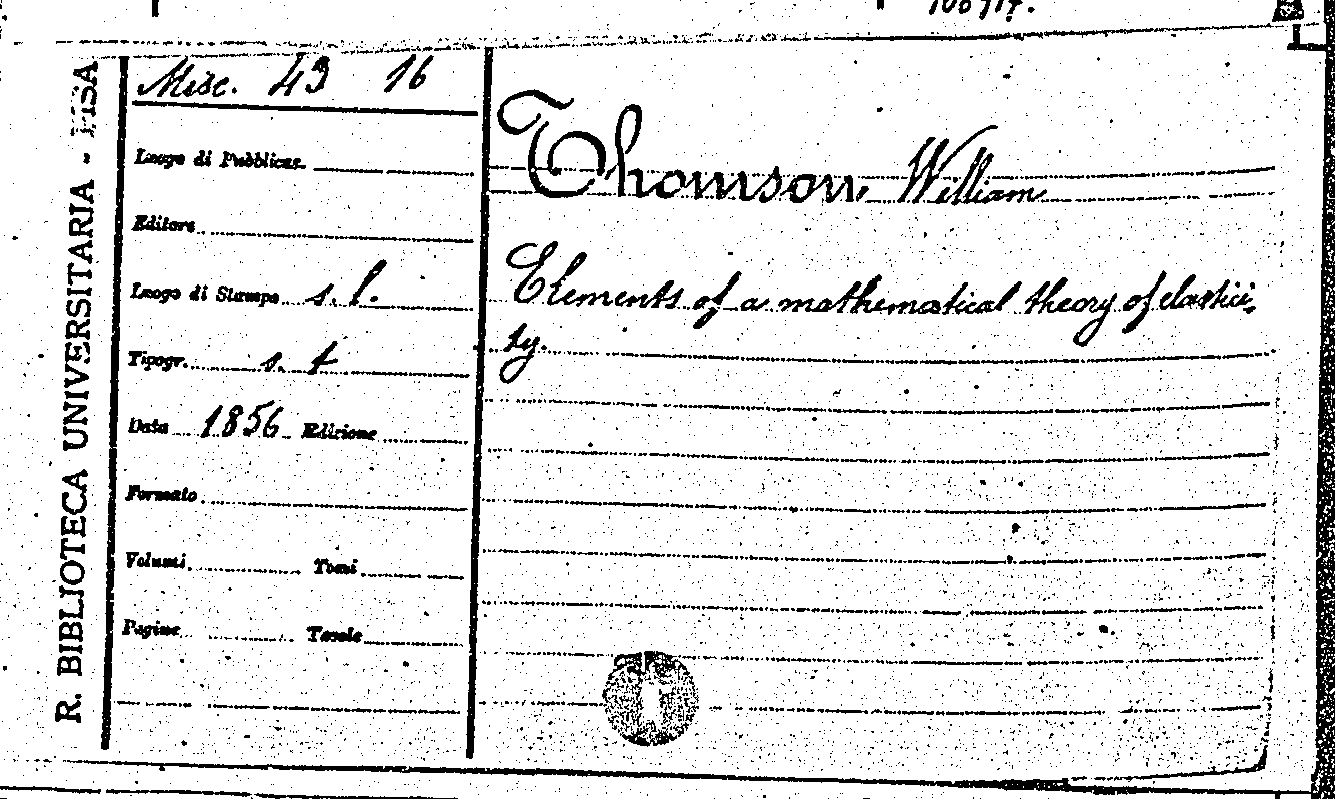 R. BIBLIOTECA UNIVERSITARIA - PISA
Misc. 43 16
Luogo di Pubblicaz.
Editore
Luogo di Stampa s. l.
Tipogr. s. t
Data 1856 Edizione
Formato
Volumi Tomi
Pagine Tavole
Thomson, William
Elements of a mathematical theory of elastici-
ty.